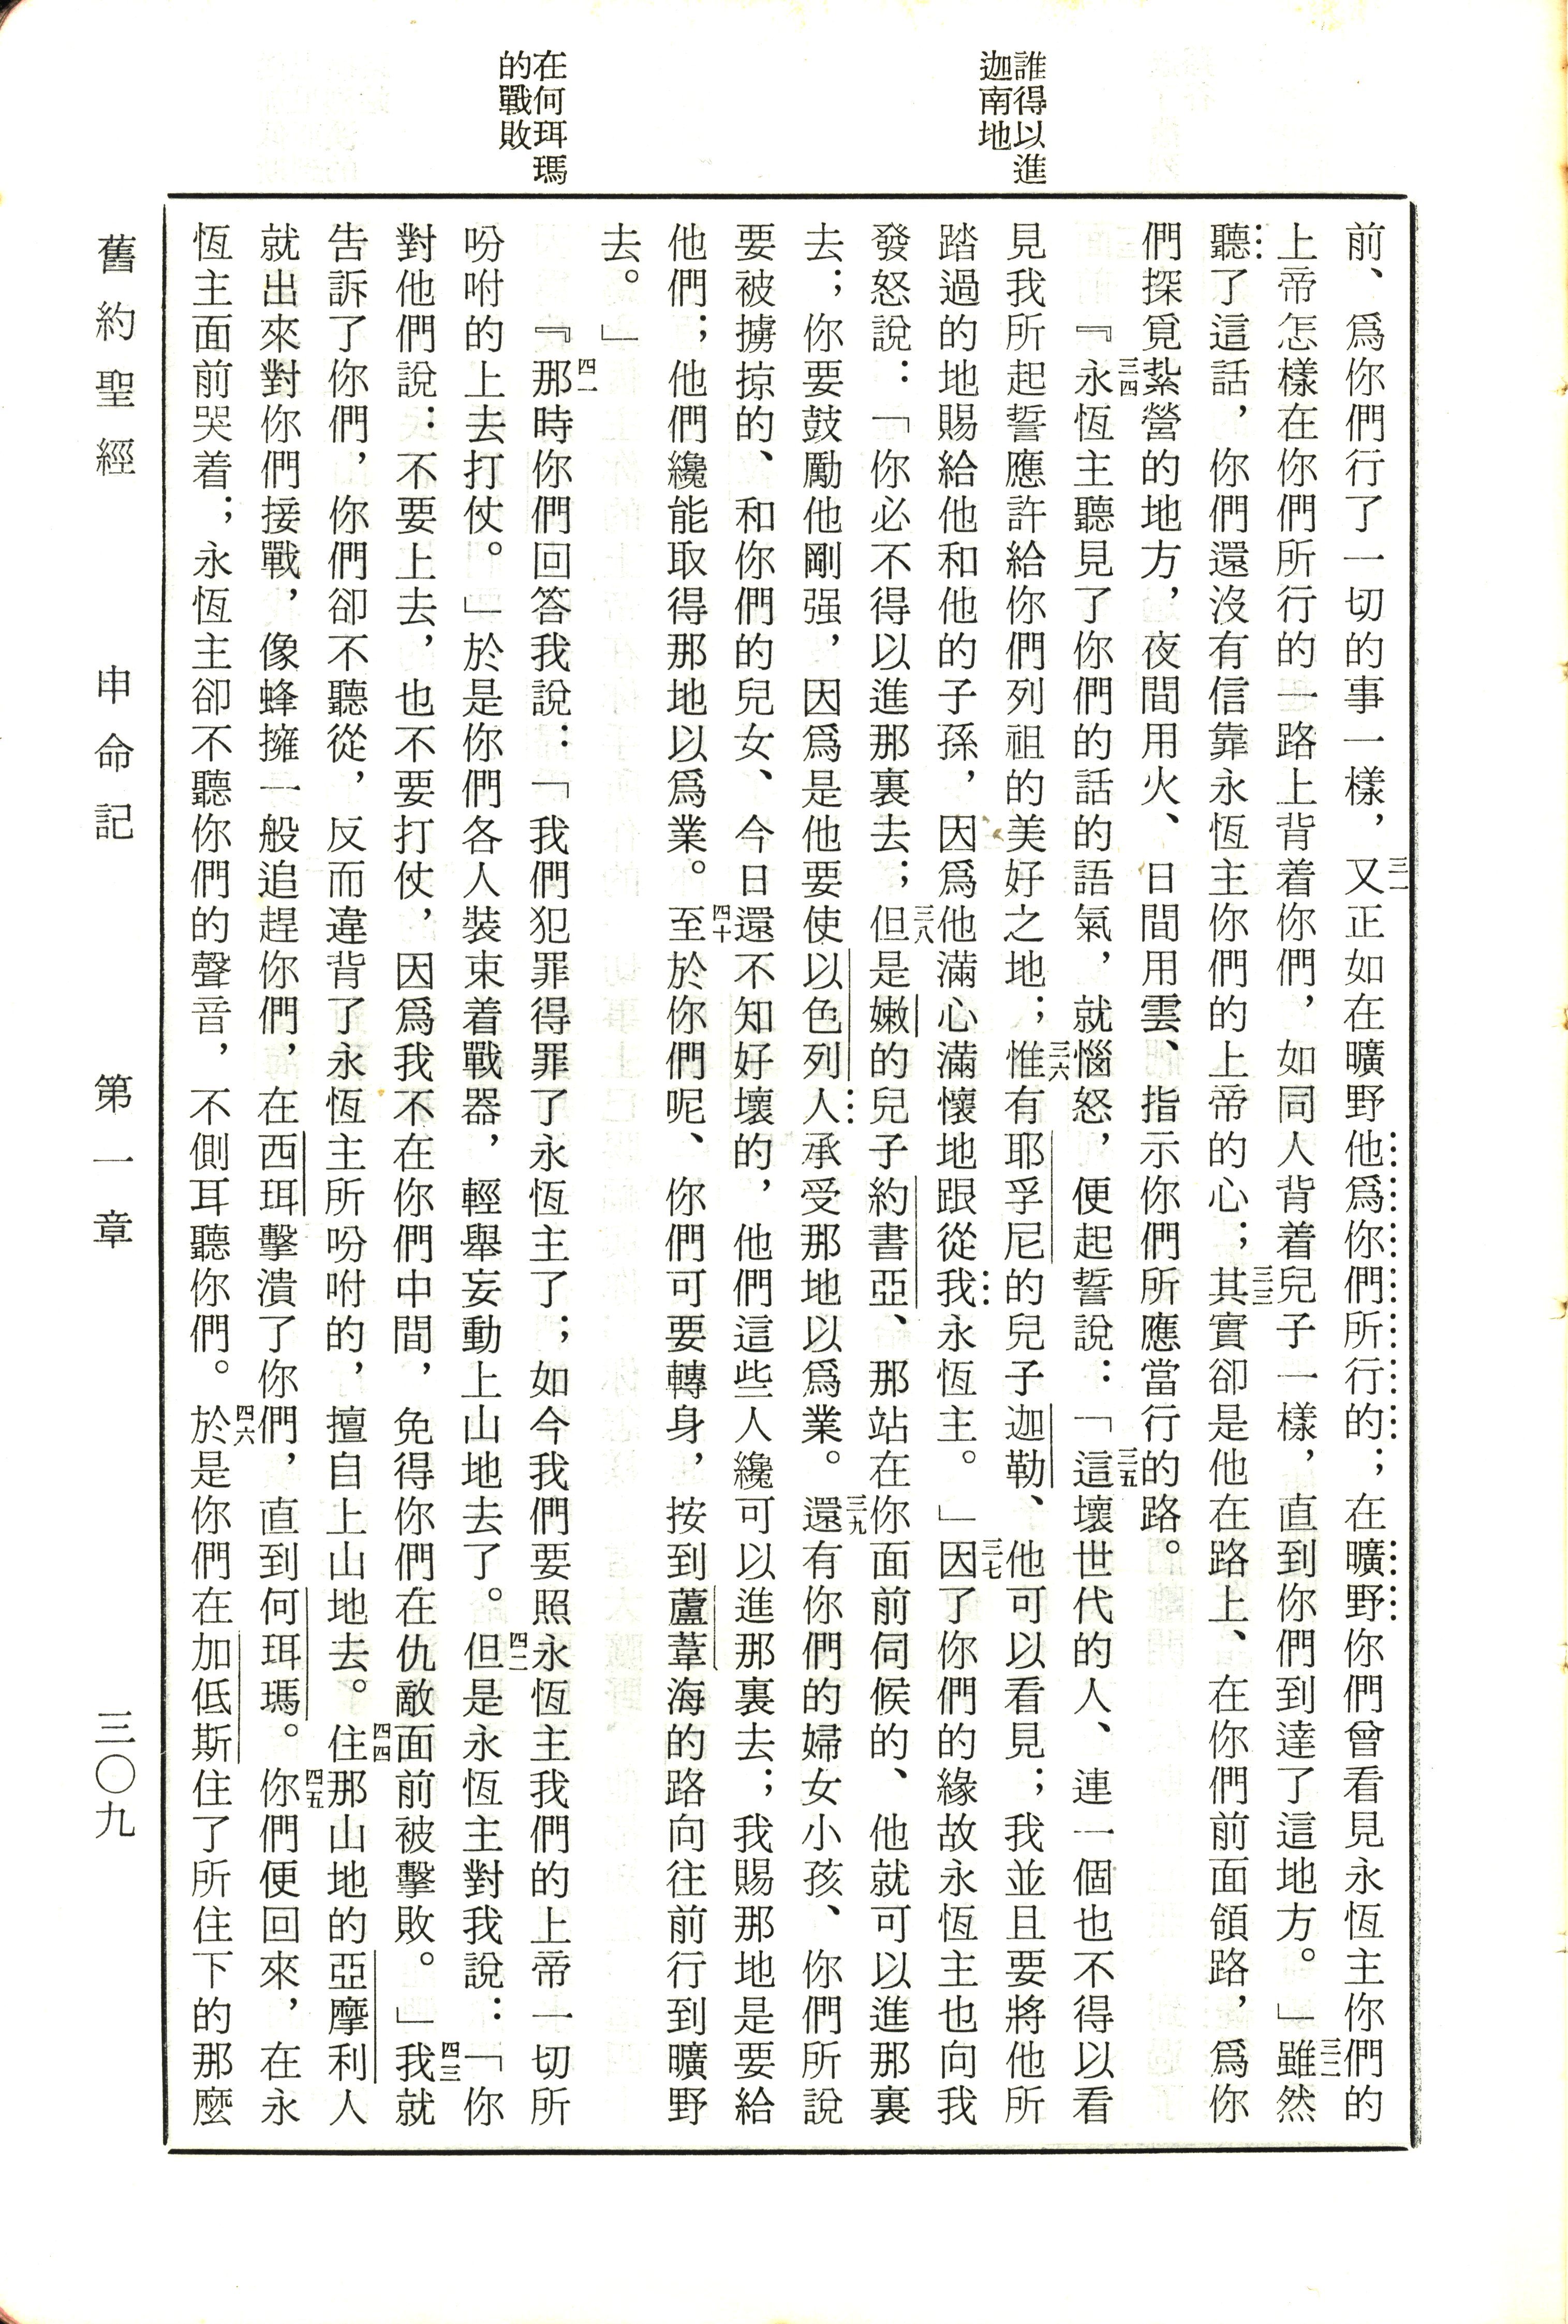 誰得以進
迦南地
在何珥瑪
的戰敗
前、爲你們行了一切的事一樣，三一又正如在曠野他爲你們所行的；在曠野你們曾看見永恆主你們的
上帝怎樣在你們所行的一路上背着你們，如同人背着兒子一樣，直到你們到達了這地方。」三二雖然
聽了這話，你們還沒有信靠永恆主你們的上帝的心；三三其實卻是他在路上、在你們前面領路，爲你
們探覓紮營的地方，夜間用火、日間用雲、指示你們所應當行的路。
『三四永恆主聽見了你們的話的語氣，就惱怒，便起誓說：「三五這壞世代的人、連一個也不得以看
見我所起誓應許給你們列祖的美好之地；三六惟有耶孚尼的兒子迦勒、他可以看見；我並且要將他所
踏過的地賜給他和他的子孫，因爲他滿心滿懷地跟從我永恆主。」三七因了你們的緣故永恆主也向我
發怒說：「你必不得以進那裏去；三八但是嫩的兒子約書亞、那站在你面前伺候的、他就可以進那裏
去；你要鼓勵他剛强，因爲是他要使以色列人承受那地以爲業。三九還有你們的婦女小孩、你們所說
要被擄掠的、和你們的兒女、今日還不知好壞的，他們這些人纔可以進那裏去；我賜那地是要給
他們；他們纔能取得那地以爲業。四十至於你們呢、你們可要轉身，按到蘆葦海的路向往前行到曠野
去。」
『四一那時你們回答我說：「我們犯罪得罪了永恆主了；如今我們要照永恆主我們的上帝一切所
吩咐的上去打仗。」於是你們各人裝束着戰器，輕舉妄動上山地去了。四二但是永恆主對我說：「你
對他們說：不要上去，也不要打仗，因爲我不在你們中間，免得你們在仇敵面前被擊敗。」四三我就
告訴了你們，你們卻不聽從，反而違背了永恆主所吩咐的，擅自上山地去。四四住那山地的亞摩利人
就出來對你們接戰，像蜂擁一般追趕你們，在西珥擊潰了你們，直到何珥瑪。四五你們便回來，在永
恆主面前哭着；永恆主卻不聽你們的聲音，不側耳聽你們。四六於是你們在加低斯住了所住下的那麼
舊約聖經　申命記　第一章　三〇九